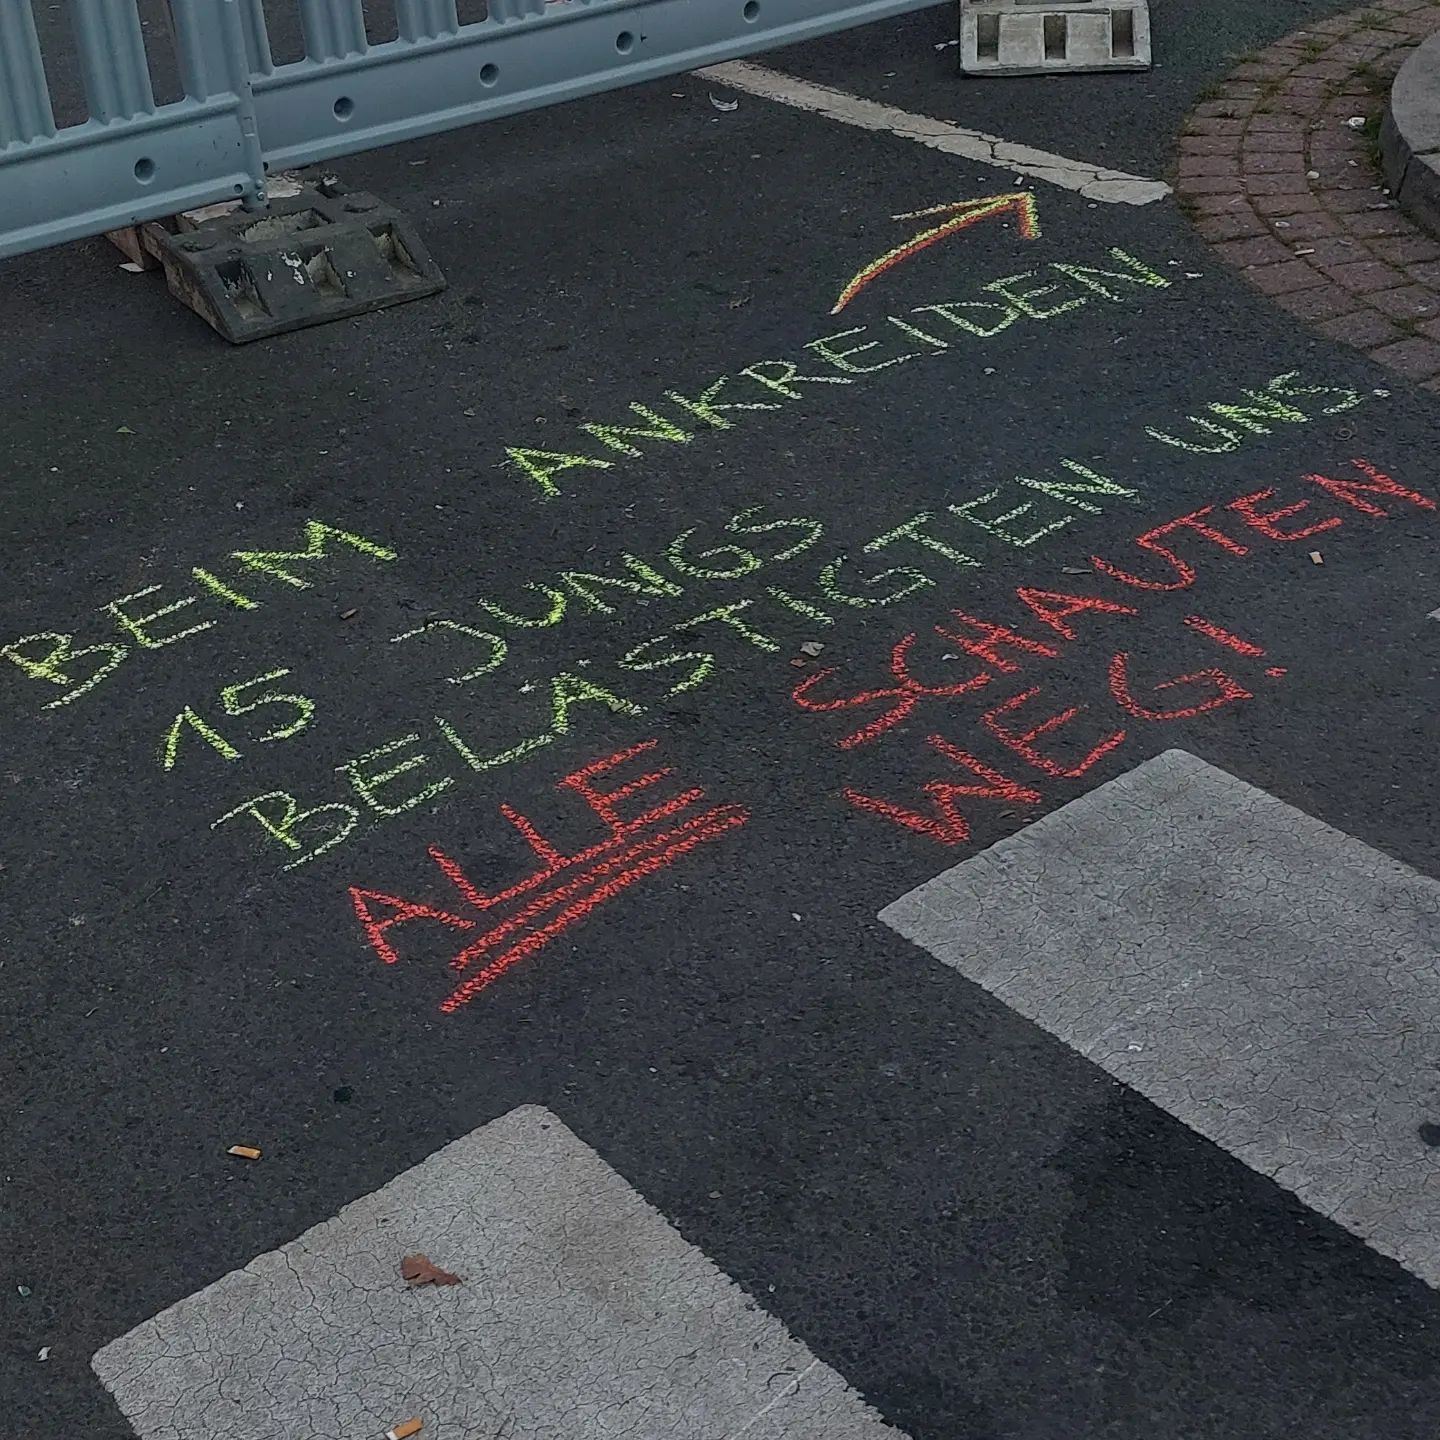 BEIM ANKREIDEN.
15 JUNGS
BELÄSTIGTEN UNS.
ALLE SCHAUTEN
WEG!